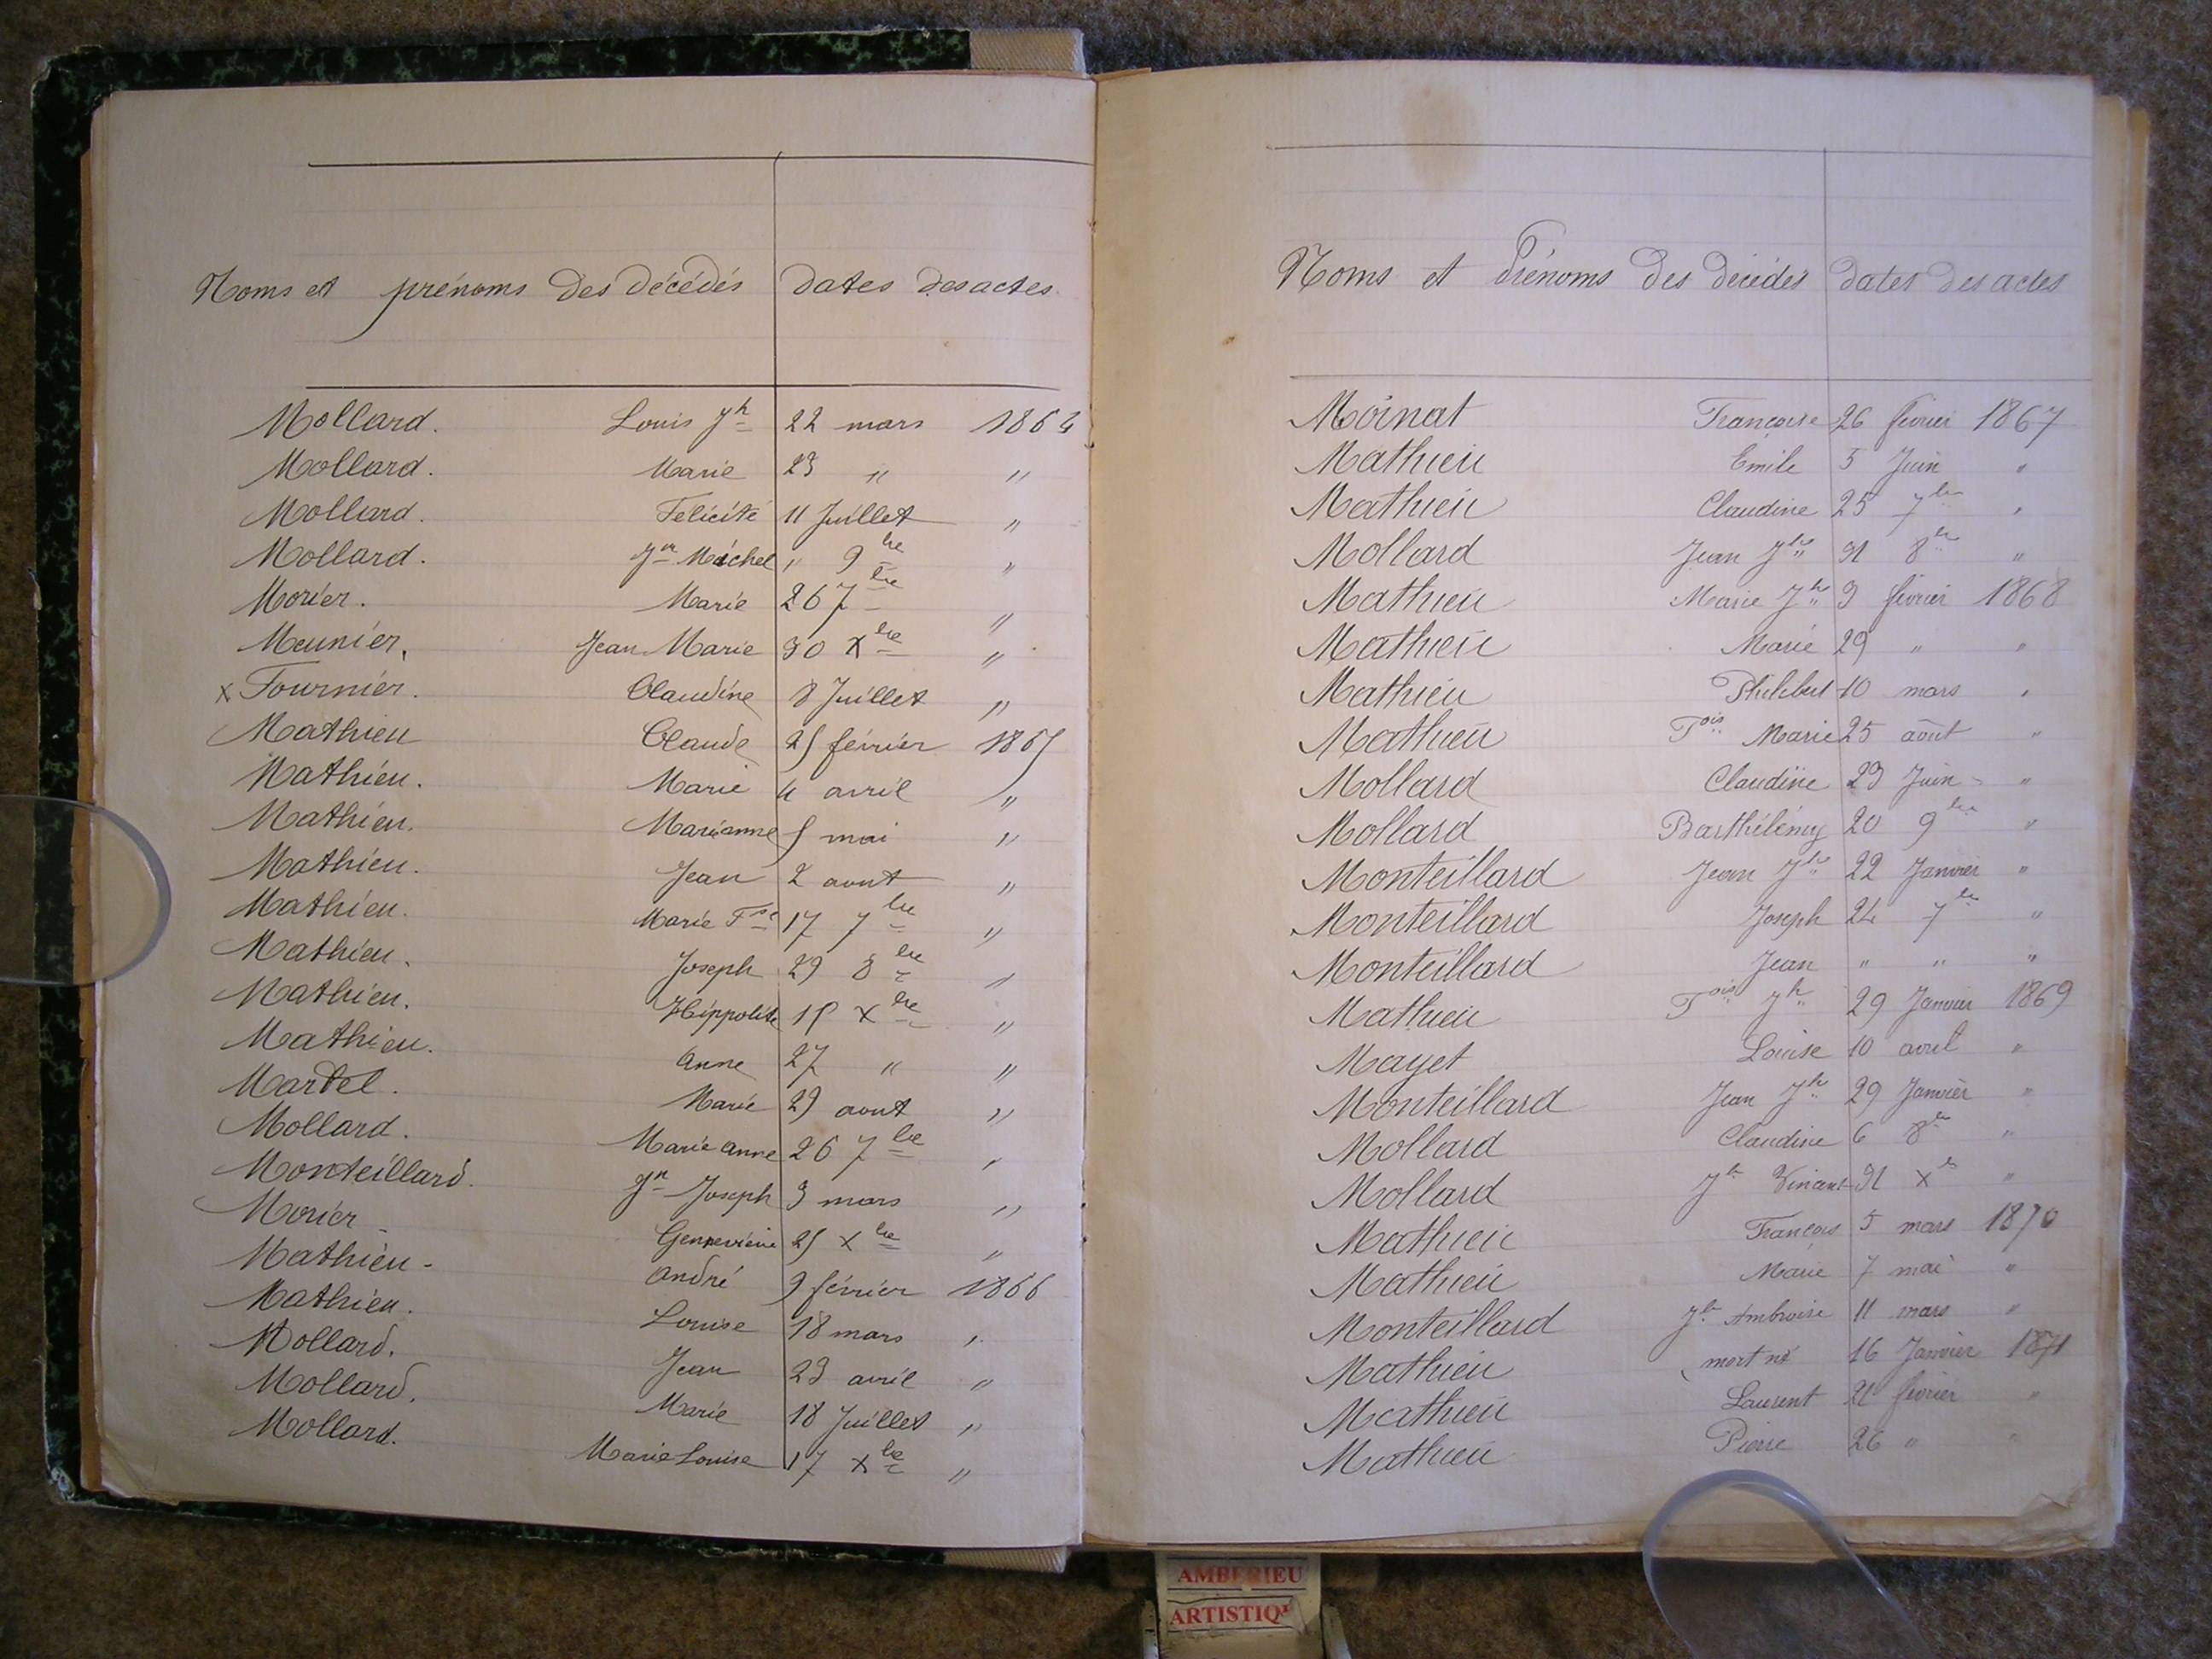 Noms et prénoms des décédés dates des actes
Mollard. Louis Jh 22 mars 1864
Mollard. Marie 23 " "
Mollard. Felicité 11 Juillet "
Mollard. Jn Michel " 9bre "
Morier. Marie 26 7bre "
Meunier. Jean Marie 30 Xbre "
x Fournier. Claudine 8 Juillet "
Mathieu Claude 25 février 1865
Mathieu. Marie 4 avril "
Mathieu. Marianne 5 mai "
Mathieu. Jean 2 aout "
Mathieu. Marie Fse 17 7bre "
Mathieu. Joseph 29 8bre "
Mathieu. Hippolite 15 Xbre "
Mathieu. Anne 27 " "
Martel. Marie 29 aout "
Mollard. Marie Anne 26 7bre "
Monteillard. Jn Joseph 3 mars "
Morier - Genevieve 25 Xbre "
Mathieu - André 9 février 1866
Mathieu. Louise 18 mars "
Mollard. Jean 23 avril "
Mollard. Marie 18 Juillet "
Mollard. Marie Louise 17 Xbre "
Noms et Prénoms des décédés dates des actes
Moinat Françoise 26 février 1867
Mathieu Emile 5 Juin "
Mathieu Claudine 25 7bre "
Mollard Jean Jh 31 8bre "
Mathieu Marie Jh 9 février 1868
Mathieu Marie 29 " "
Mathieu Philibert 10 mars "
Mathieu Fois Marie 25 août "
Mollard Claudine 23 Juin "
Mollard Barthélémy 20 9bre "
Monteillard Jean Jh 22 Janvier "
Monteillard Joseph 24 7bre "
Monteillard Jean " " "
Mathieu Fois Jh 29 Janvier 1869
Mayet Louise 10 avril "
Monteillard Jean Jh 29 Janvier "
Mollard Claudine 6 8bre "
Mollard Jh Vincent 31 Xbre "
Mathieu François 5 mars 1870
Mathieu Marie 7 mai "
Monteillard Jh Ambroise 11 mars "
Mathieu mort né 16 Janvier 1871
Mathieu Laurent 21 février "
Mathieu Pierre 26 " "
AMBERIEU
ARTISTIQ